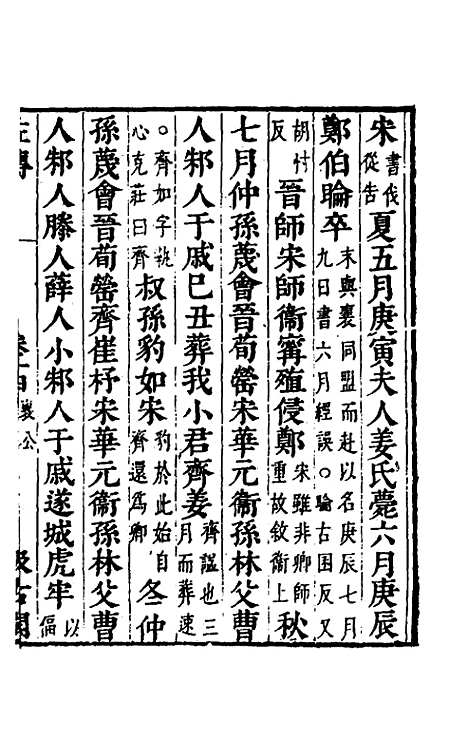 宋書伐從告夏五月庚寅夫人姜氏薨六月庚辰
鄭伯睔卒未與襄同盟而赴以名庚辰七月九日書六月經誤○睔古囷反又
胡忖反晉師宋師衞甯殖侵鄭宋雖非卿師重故敘衞上秋
七月仲孫蔑會晉荀罃宋華元衞孫林父曹
人邾人于戚己丑葬我小君齊姜齊謚也三月而葬速
○齊如字執心克莊曰齊叔孫豹如宋豹於此始自齊還爲卿冬仲
孫蔑會晉荀罃齊崔杼宋華元衞孫林父曹
人邾人滕人薛人小邾人于戚遂城虎牢以偪
左傳 襄公 汲古閣